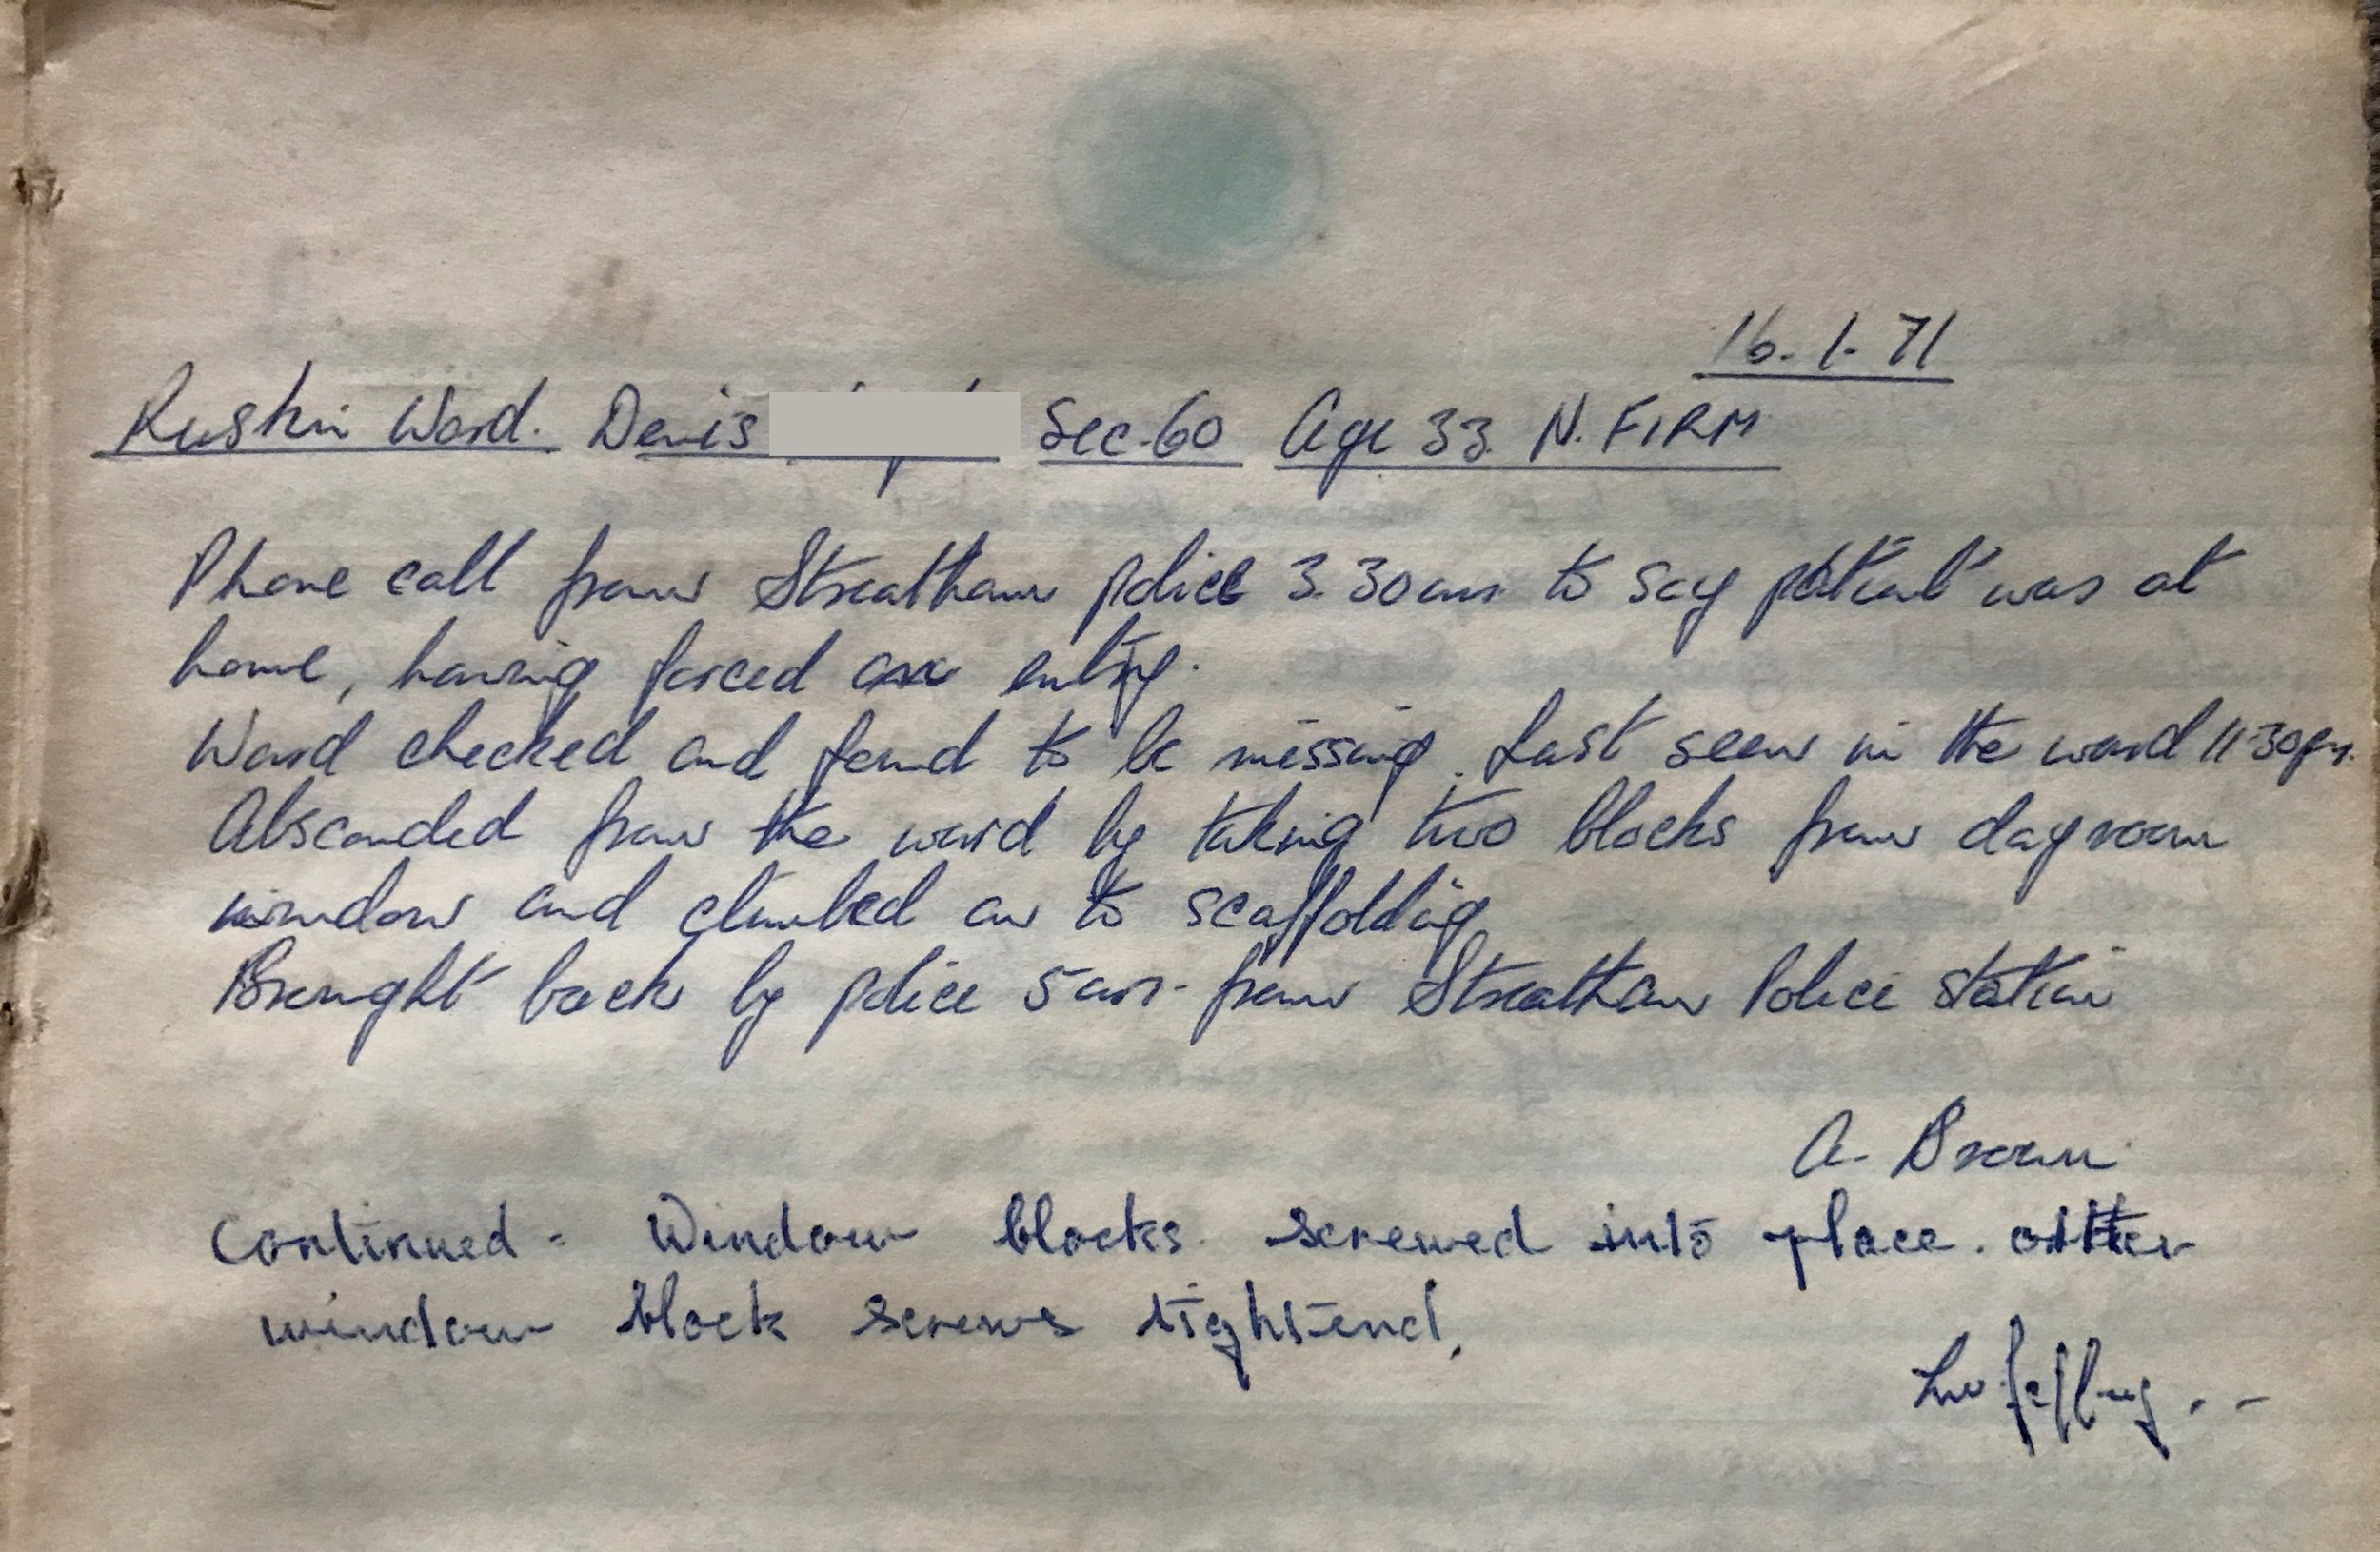 16.1.71
Ruskin Ward. Denis Sec.60 Age 33. N. FIRM
Phone call from Streatham police 3.30am to say patient was at
home, having forced an entry.
Ward checked and found to be missing. Last seen in the ward 11.30pm.
Absconded from the ward by taking two blocks from dayroom
window and climbed on to scaffolding
Brought back by police 5am. from Streatham Police station
A. Brown
Continued - Window blocks screwed into place. other
window block screws tightend.